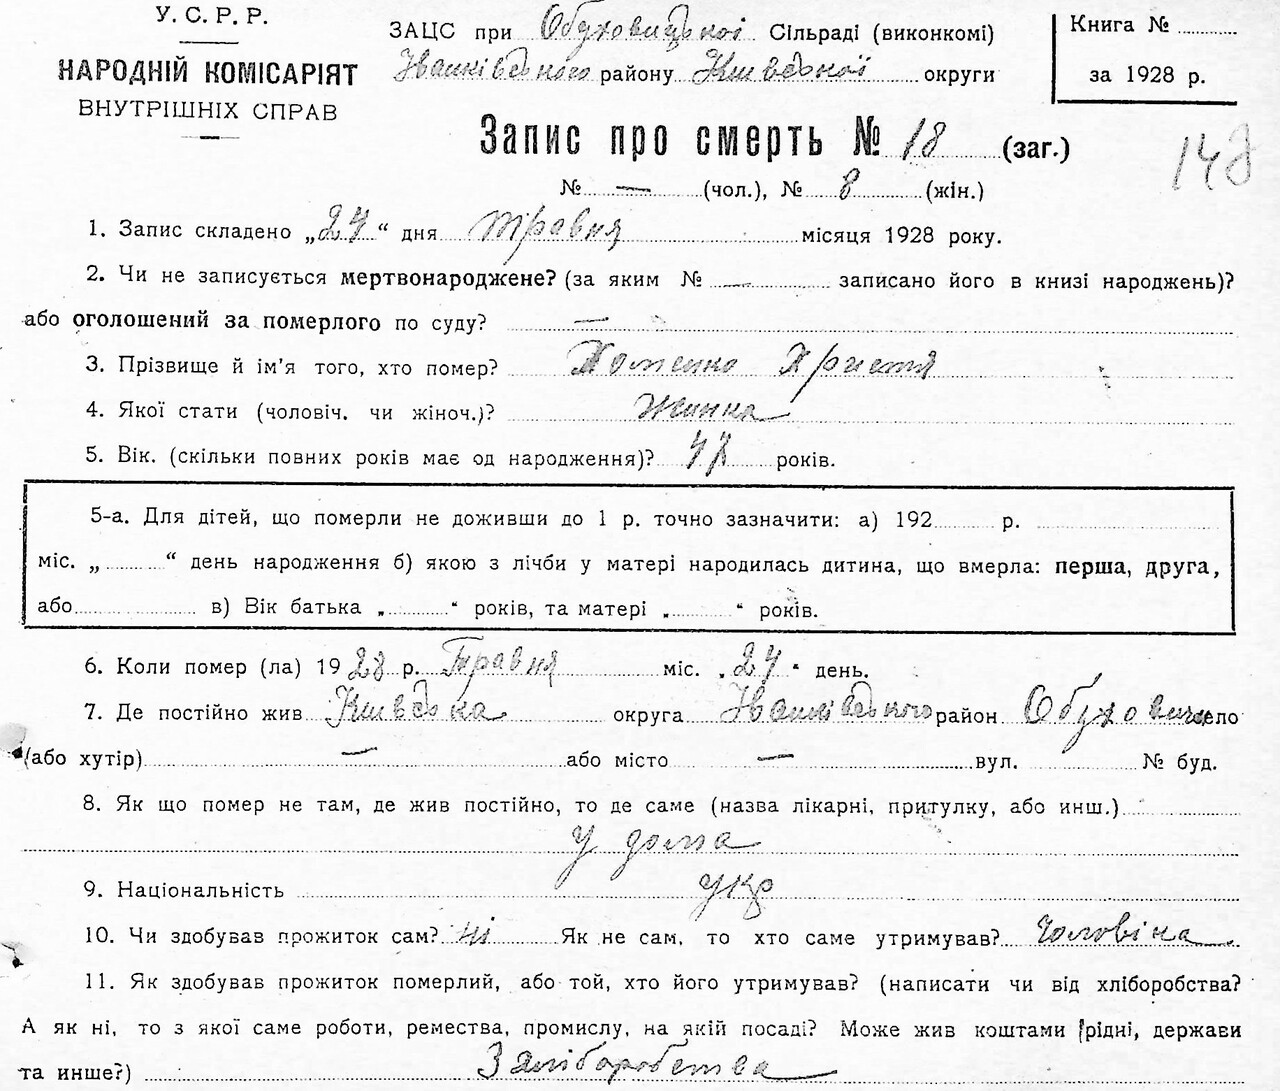 У. С. Р. Р.
НАРОДНІЙ КОМІСАРІЯТ
ВНУТРІШНІХ СПРАВ
ЗАЦС при Обуховицькоі Сільраді (виконкомі)
Іванківського району Київської округи
Книга №
за 1928 р.
Запис про смерть № 18 (заг.)
148
№ — (чол.), № 8 (жін.)
1. Запис складено „24“ дня травня місяця 1928 року.
2. Чи не записується мертвонароджене? (за яким № — записано його в книзі народжень)?
або оголошений за померлого по суду? —
3. Прізвище й ім'я того, хто помер? Хоменко Христя
4. Якої стати (чоловіч. чи жіноч.)? Жинка
5. Вік. (скільки повних років має од народження)? 47 років.
5-а. Для дітей, що померли не доживши до 1 р. точно зазначити: а) 192 р.
міс. „ “ день народження б) якою з лічби у матері народилась дитина, що вмерла: перша, друга,
або в) Вік батька „ “ років, та матері „ “ років.
6. Коли помер (ла) 1928 р. Травня міс. „24“ день.
7. Де постійно жив Київська округа Іванківського район Обуховичи село
(або хутір) — або місто — вул. № буд.
8. Як що помер не там, де жив постійно, то де саме (назва лікарні, притулку, або инш.)
у дома
9. Національність укр
10. Чи здобував прожиток сам? ні Як не сам, то хто саме утримував? Чоловіка
11. Як здобував прожиток померлий, або той, хто його утримував? (написати чи від хліборобства?
А як ні, то з якої саме роботи, ремества, промислу, на якій посаді? Може жив коштами рідні, держави
та инше?) З хліборобства